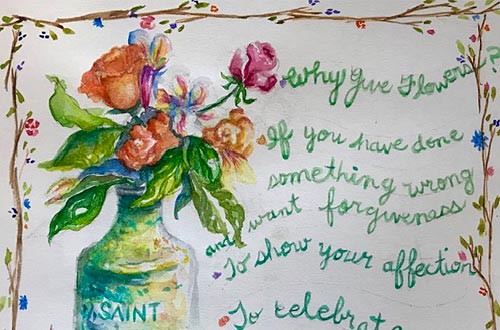 Why Give Flowers?
If you have done
something wrong
and want forgiveness
To show your affection
To celebrate
SAINT